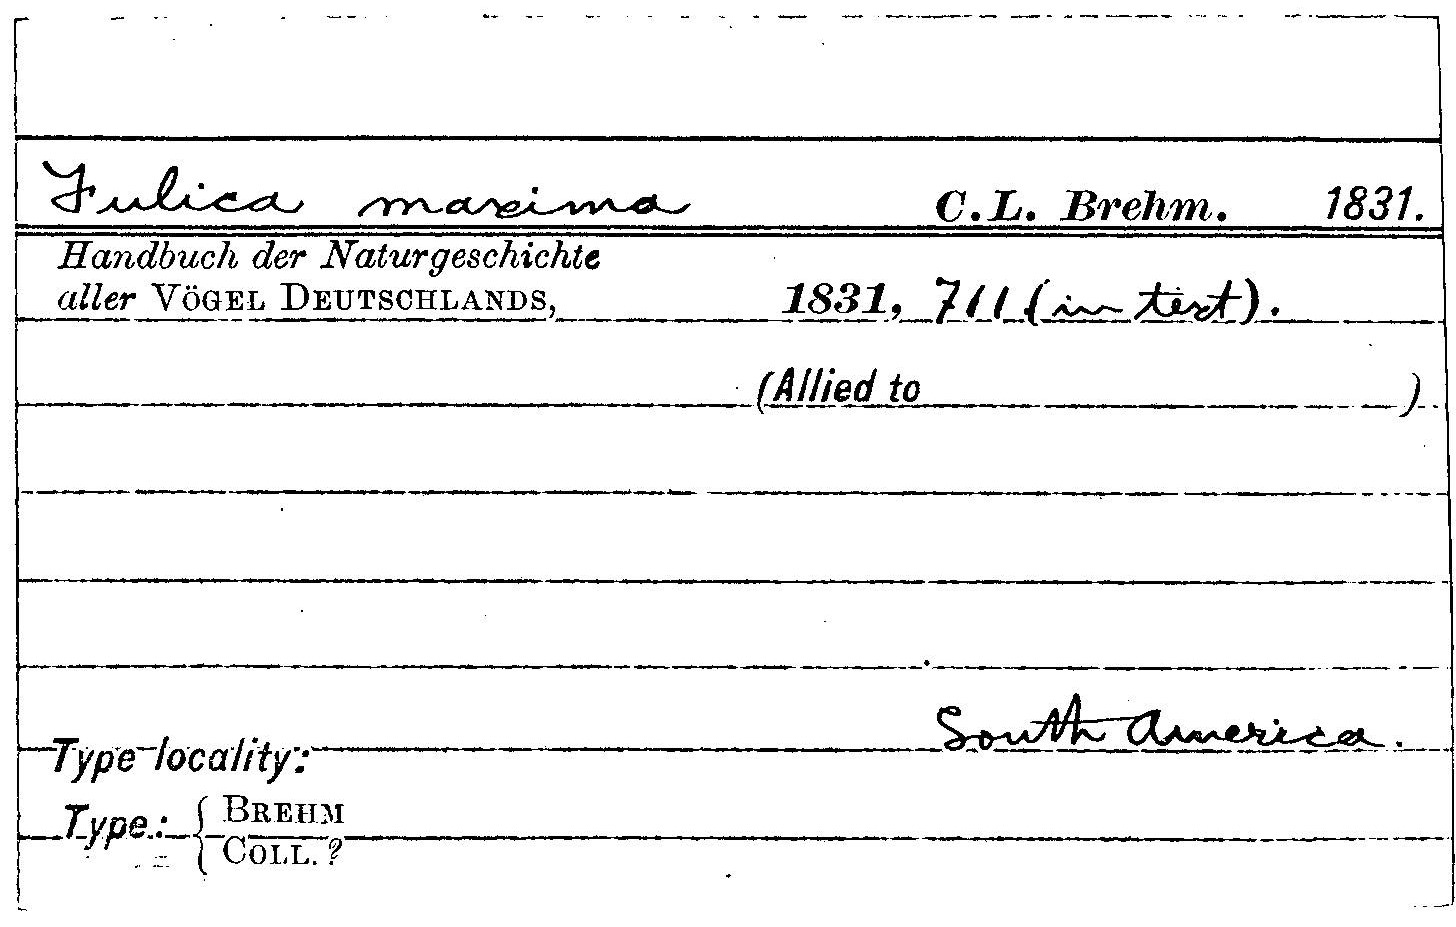 Fulica maxima C. L. Brehm. 1831.
Handbuch der Naturgeschichte
aller VÖGEL DEUTSCHLANDS, 1831, 711 (in text).
(Allied to )
South America.
Type locality:
Type: { BREHM
COLL. ?